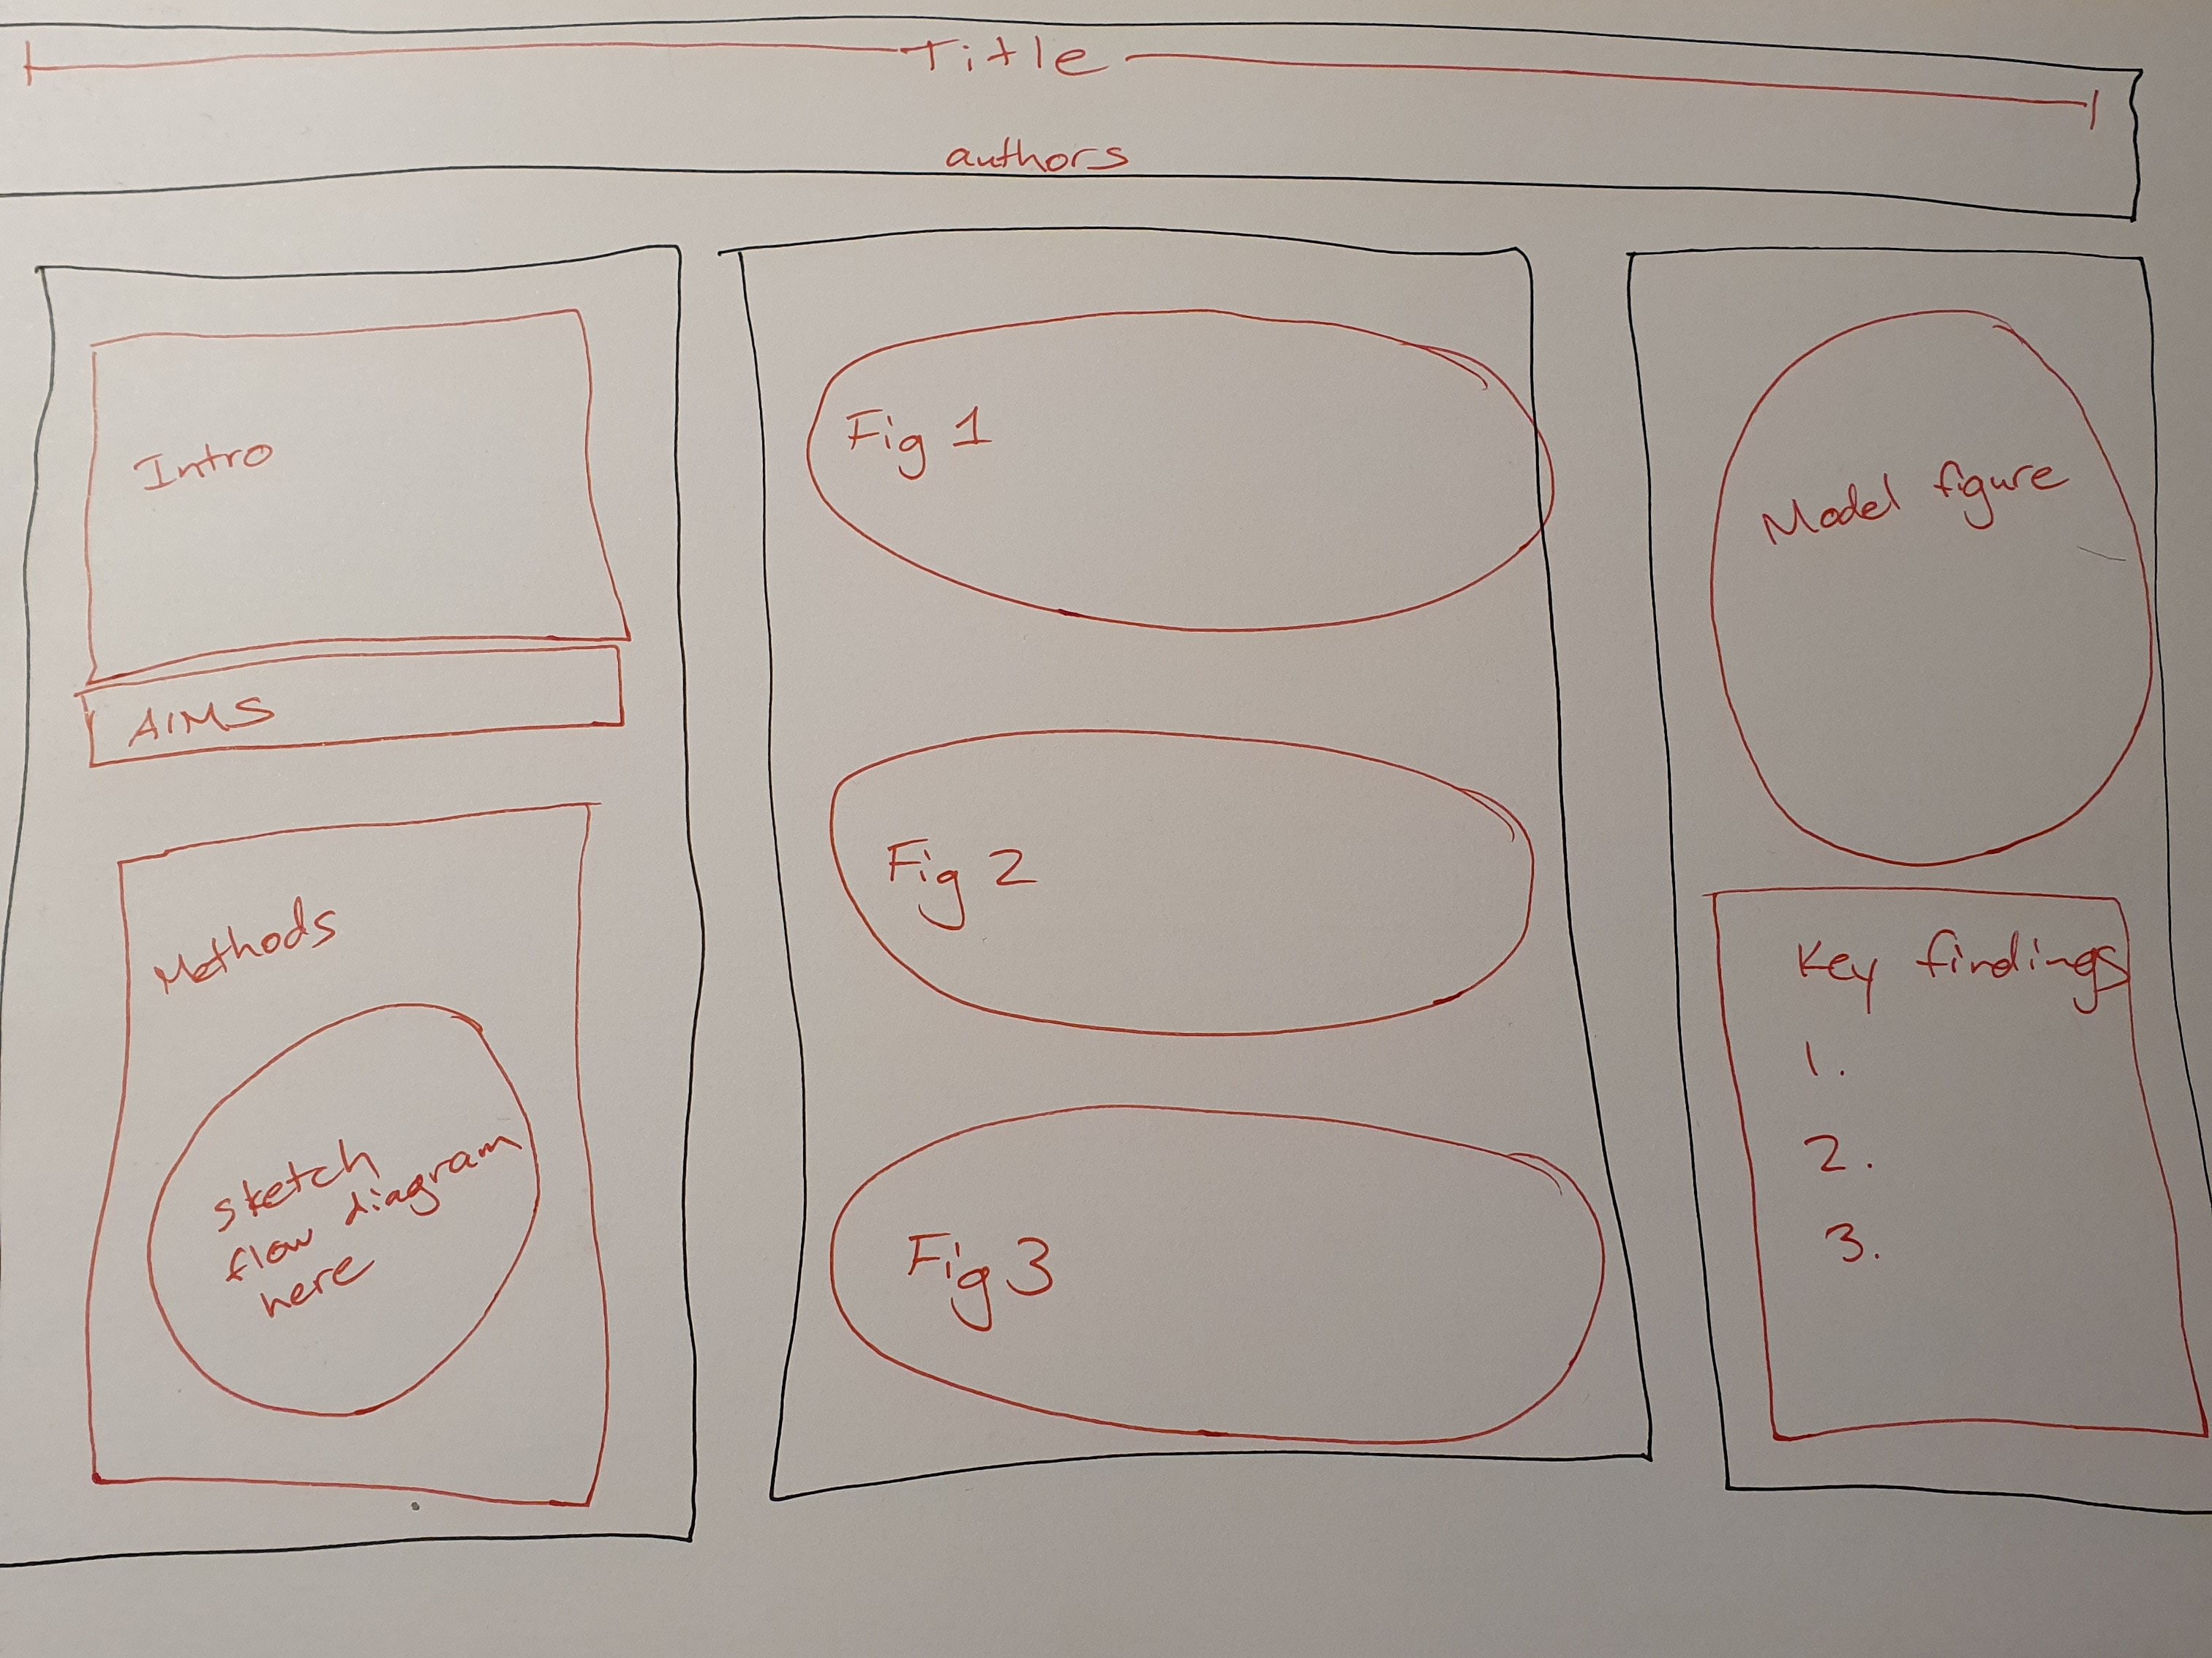 Title
authors
Intro
AIMS
Methods
sketch
flow diagram
here
Fig 1
Fig 2
Fig 3
Model figure
Key findings
1.
2.
3.